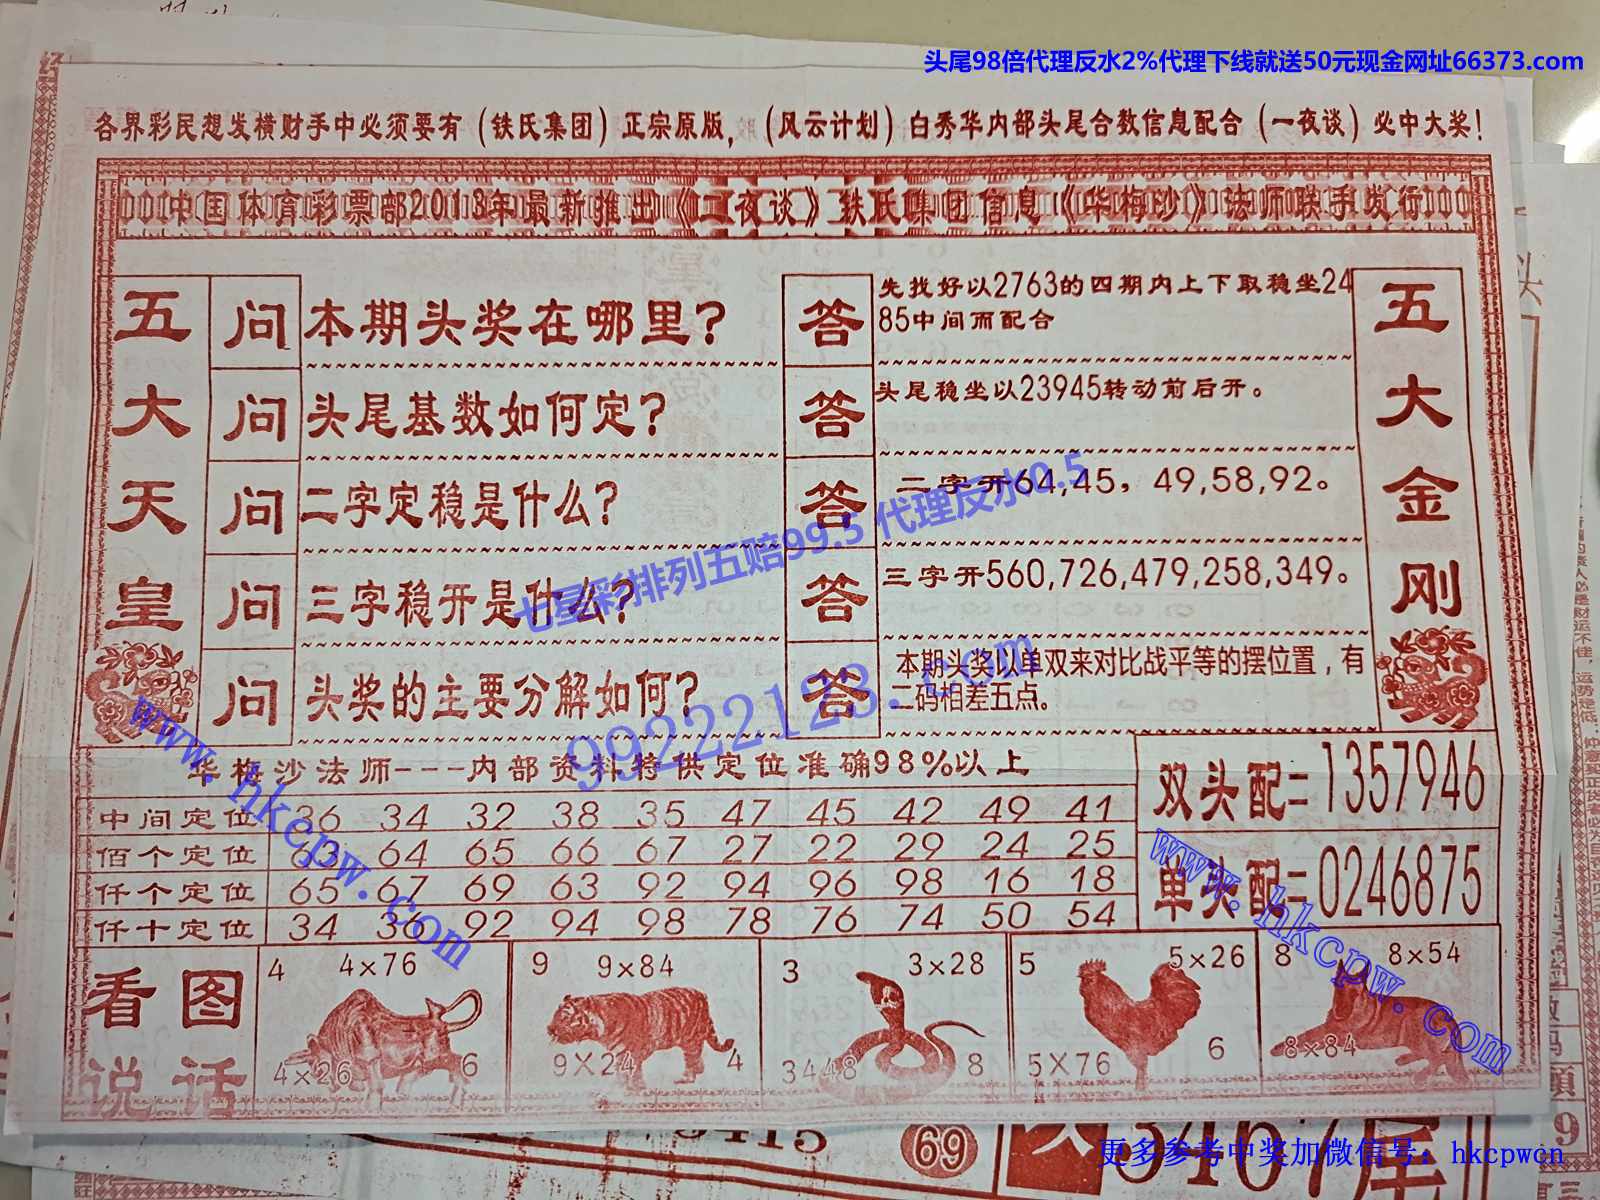 头尾98倍代理反水2%代理下线就送50元现金网址66373.com
各界彩民想发横财手中必须要有（铁氏集团）正宗原版，（风云计划）白秀华内部头尾合数信息配合（一夜谈）必中大奖！
中国体育彩票部2018年最新推出《二夜谈》铁氏集团信息《华梅沙》法师联手发行
五大天皇
问 本期头奖在哪里？
答 先找好以2763的四期内上下取稳坐24
85中间而配合
问 头尾基数如何定？
答 头尾稳坐以23945转动前后开。
问 二字定稳是什么？
答 二字开64,45，49,58,92。
问 三字稳开是什么？
答 三字开560,726,479,258,349。
问 头奖的主要分解如何？
答 本期头奖以单双来对比战平等的摆位置，有
二码相差五点。
五大金刚
七星彩排列五赔99.5 代理反水0.5
99222123.com
华梅沙法师---内部资料特供定位准确98%以上
中间定位 36 34 32 38 35 47 45 42 49 41
佰个定位 63 64 65 66 67 27 22 29 24 25
仟个定位 65 67 69 63 92 94 96 98 16 18
仟十定位 34 36 92 94 98 78 76 74 50 54
双头配=1357946
单头配=0246875
www.hkcpw.com
www.hkcpw.com
看图说话
4 4×76
4×26 6
9 9×84
9×24 4
3 3×28
3448 8
5 5×26
5×76 6
8 8×54
8×84
69
3467尾
更多参考中奖加微信号：hkcpwcn